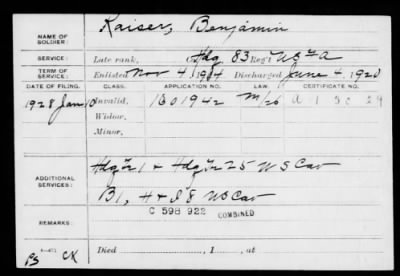 Kaiser, Benjamin
NAME OF SOLDIER:
SERVICE: Late rank, Hdq 83 Reg't US F A
TERM OF SERVICE: Enlisted Nov 4, 1914, Discharged June 4, 1920
DATE OF FILING. CLASS. APPLICATION NO. LAW. CERTIFICATE NO.
1928 Jan 10 Invalid, 1601942 M/26 A 1 3c 29
Widow,
Minor,
ADDITIONAL SERVICES:
Hdq Tr 21 & Hdq Tr 25 US Cav
B1, H & I 8 US Cav
C 598 922 COMBINED
REMARKS:
Died , 1 , at
PS CK